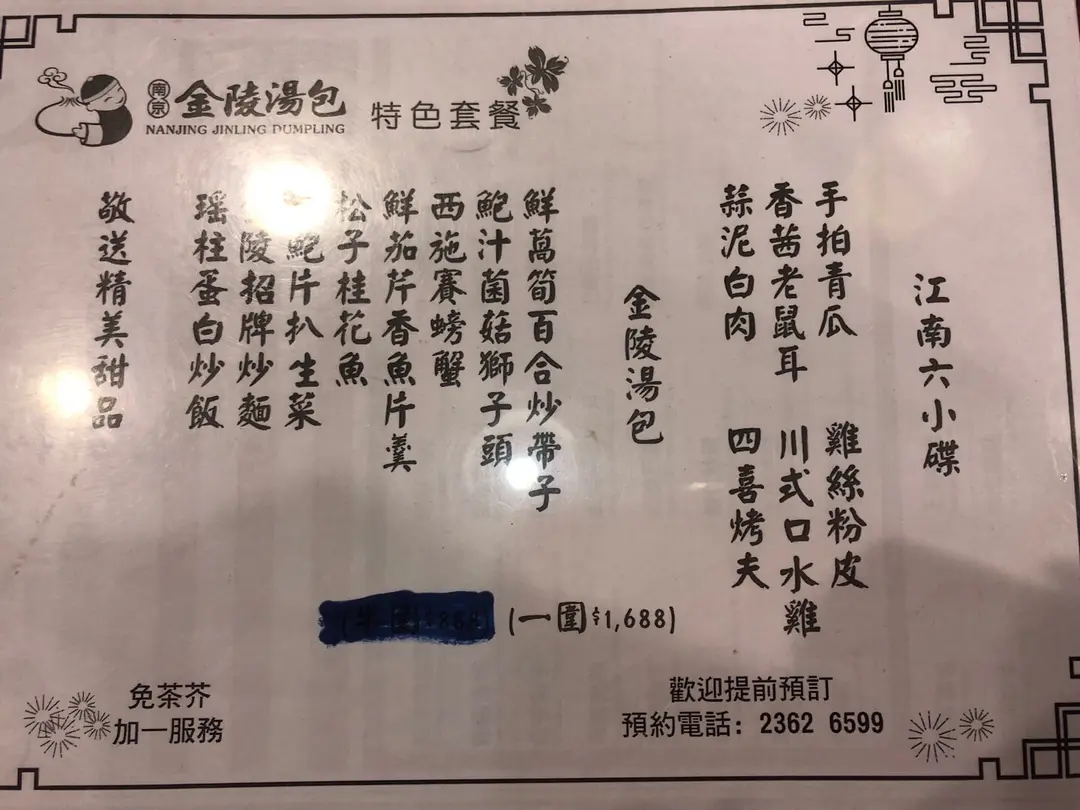 南京
金陵湯包
NANJING JINLING DUMPLING
特色套餐
江南六小碟
手拍青瓜 雞絲粉皮
香茜老鼠耳 川式口水雞
蒜泥白肉 四喜烤夫
金陵湯包
鮮萵筍百合炒帶子
鮑汁菌菇獅子頭
西施賽螃蟹
鮮茄芹香魚片羹
松子桂花魚
鮑片扒生菜
陵招牌炒麵
瑤柱蛋白炒飯
敬送精美甜品
(半圍$888)
(一圍$1,688)
免茶芥
加一服務
歡迎提前預訂
預約電話: 2362 6599